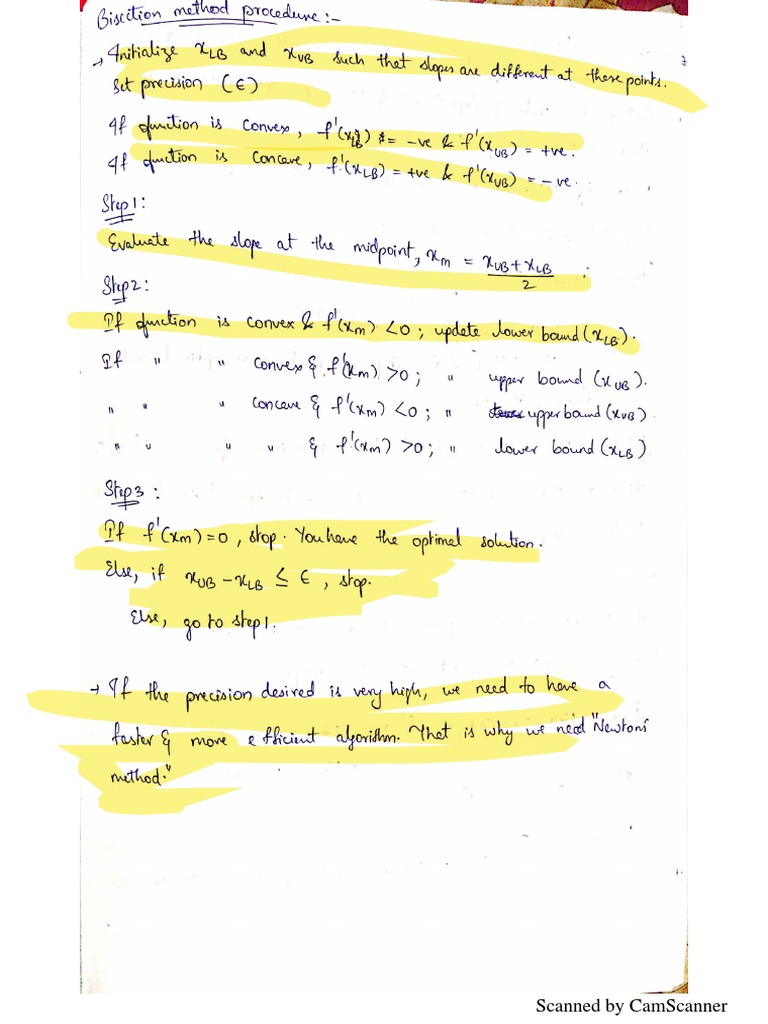 Bisection method procedure:-
→ Initialize x_LB and x_UB such that slopes are different at these points.
Set precision (ϵ)
If function is convex, f'(x_LB) = -ve & f'(x_UB) = +ve.
If function is concave, f'(x_LB) = +ve & f'(x_UB) = -ve.
Step 1:
Evaluate the slope at the midpoint, x_m = (x_UB + x_LB)/2 .
Step 2:
If function is convex & f'(x_m) < 0 ; update lower bound (x_LB).
If " " convex & f'(x_m) > 0 ; " upper bound (x_UB).
" " " concave & f'(x_m) < 0 ; " upper bound (x_UB)
" " " " & f'(x_m) > 0 ; " lower bound (x_LB)
Step 3 :
If f'(x_m) = 0 , stop. You have the optimal solution.
Else, if x_UB - x_LB ≤ ϵ , stop.
Else, go to step 1.
→ If the precision desired is very high, we need to have a
faster & more efficient algorithm. That is why we need "Newtons
method."
Scanned by CamScanner